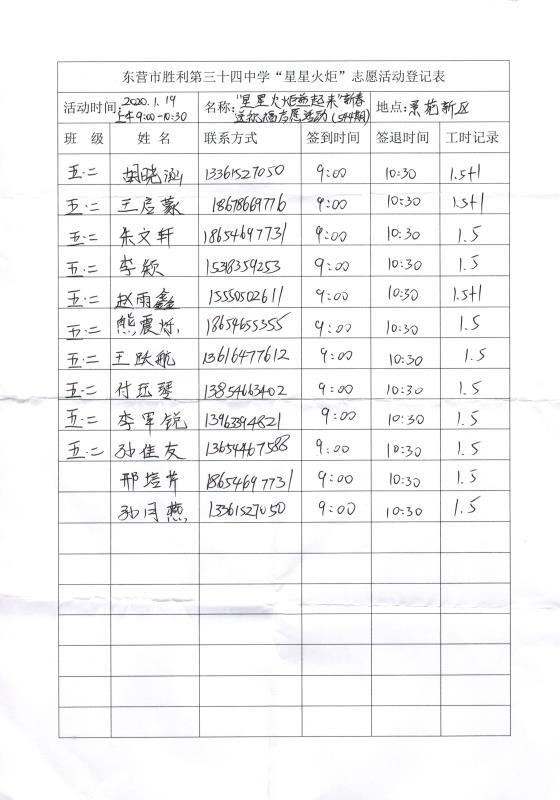 东营市胜利第三十四中学“星星火炬”志愿活动登记表
活动时间: 2020.1.19 上午9:00-10:30 名称: "星星火炬益起来"新春送祝福志愿活动(544期) 地点: 景苑新区
班 级 姓 名 联系方式 签到时间 签退时间 工时记录
五.二 胡晓涵 13361527050 9:00 10:30 1.5+1
五.二 王启蒙 18678669776 9:00 10:30 1.5+1
五.二 朱文轩 18654697731 9:00 10:30 1.5
五.二 李颖 15318359253 9:00 10:30 1.5
五.二 赵雨鑫 15550502611 9:00 10:30 1.5+1
五.二 熊震烁 18654655355 9:00 10:30 1.5
五.二 王跃航 13616477612 9:00 10:30 1.5
五.二 付珏琴 13854663402 9:00 10:30 1.5
五.二 李军锐 13963394821 9:00 10:30 1.5
五.二 孙佳友 13654467588 9:00 10:30 1.5
邢培芹 18654697731 9:00 10:30 1.5
孙月燕 13361527050 9:00 10:30 1.5